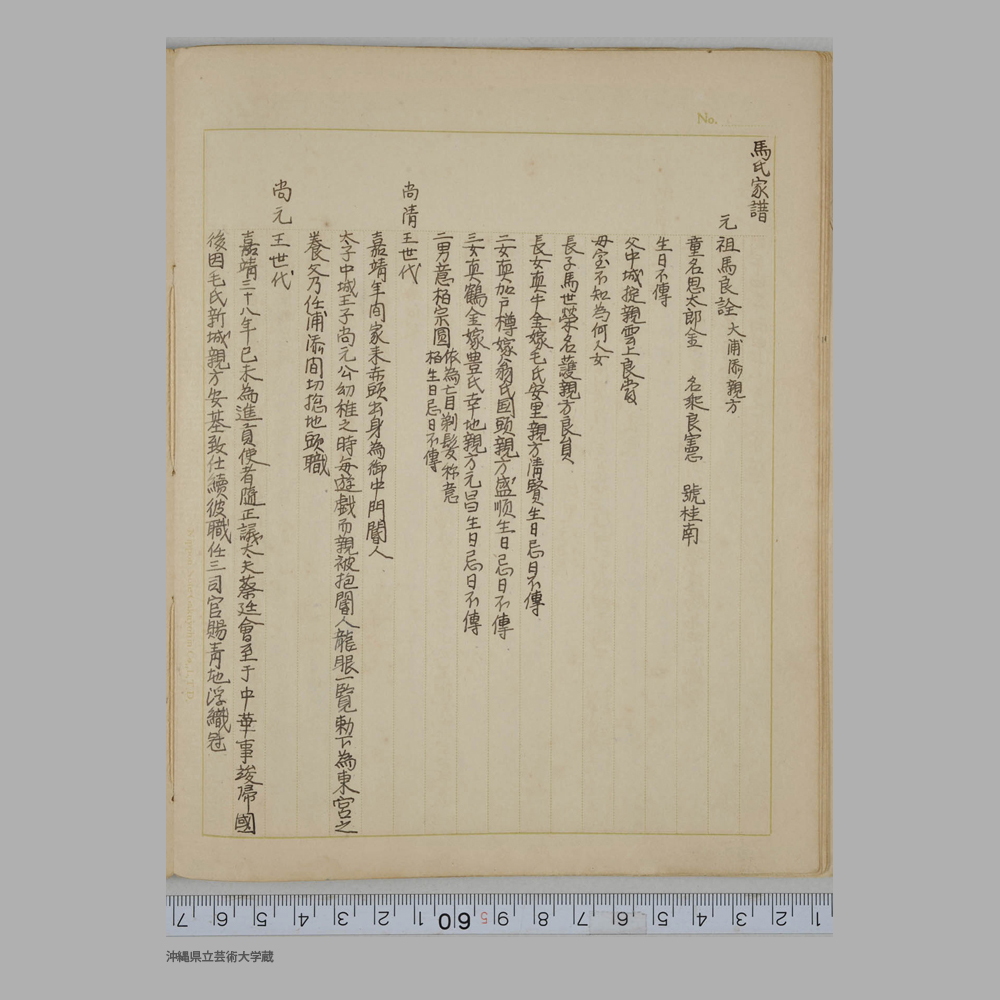 No.
馬氏家譜
元祖馬良詮 大浦添親方
童名思太郎金 名乘良憲 號桂南
生日不傳
父中城掟親雲上良甞
母室不知為何人女
長子馬世榮名護親方良員
長女真牛金嫁毛氏安里親方清賢生日忌日不傳
二女真加戸樽嫁翁氏国頭親方盛順生日忌日不傳
三女真鶴金嫁豊氏幸地親方元昌生日忌日不傳
二男意栢宗圓 依為亡目剃髪称意栢生日忌日不傳
尚清王世代
嘉靖年間家来赤頭出身為御中門闇人
太子中城王子尚元公幼稚之時毎遊戯而親被抱闇人龍眼一覧勅下為東宮之
養父乃任浦添間切惣地頭職
尚元王世代
嘉靖三十八年己未為進貢使者隨正議大夫蔡廷會至于中華事竣帰國
後因毛氏新城親方安基致仕續彼職任三司官賜青地浮織冠
7 6 5 4 3 2 1 60 5 9 8 7 6 5 4 3 2 1
沖縄県立芸術大学蔵